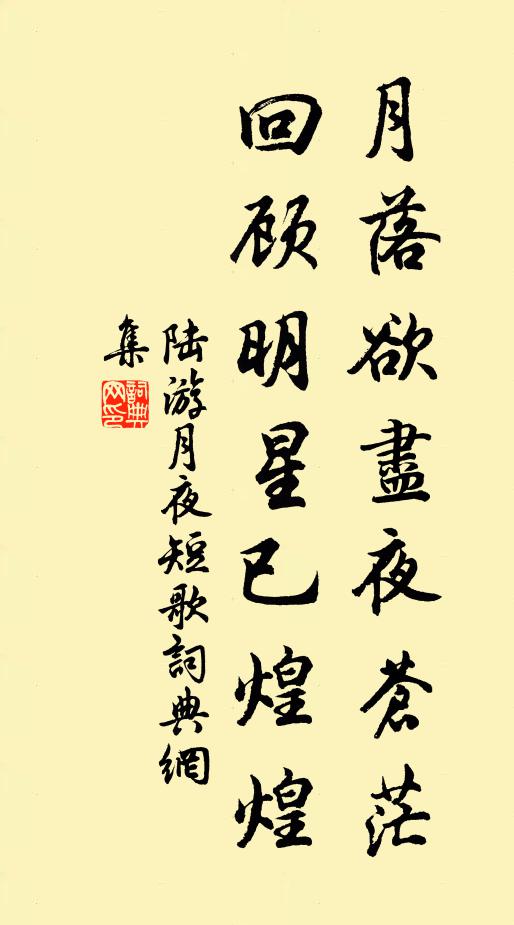 月落欲盡夜蒼茫
回顾明星已煌煌
陆游月夜短歌詞典網
集
詞典
网印